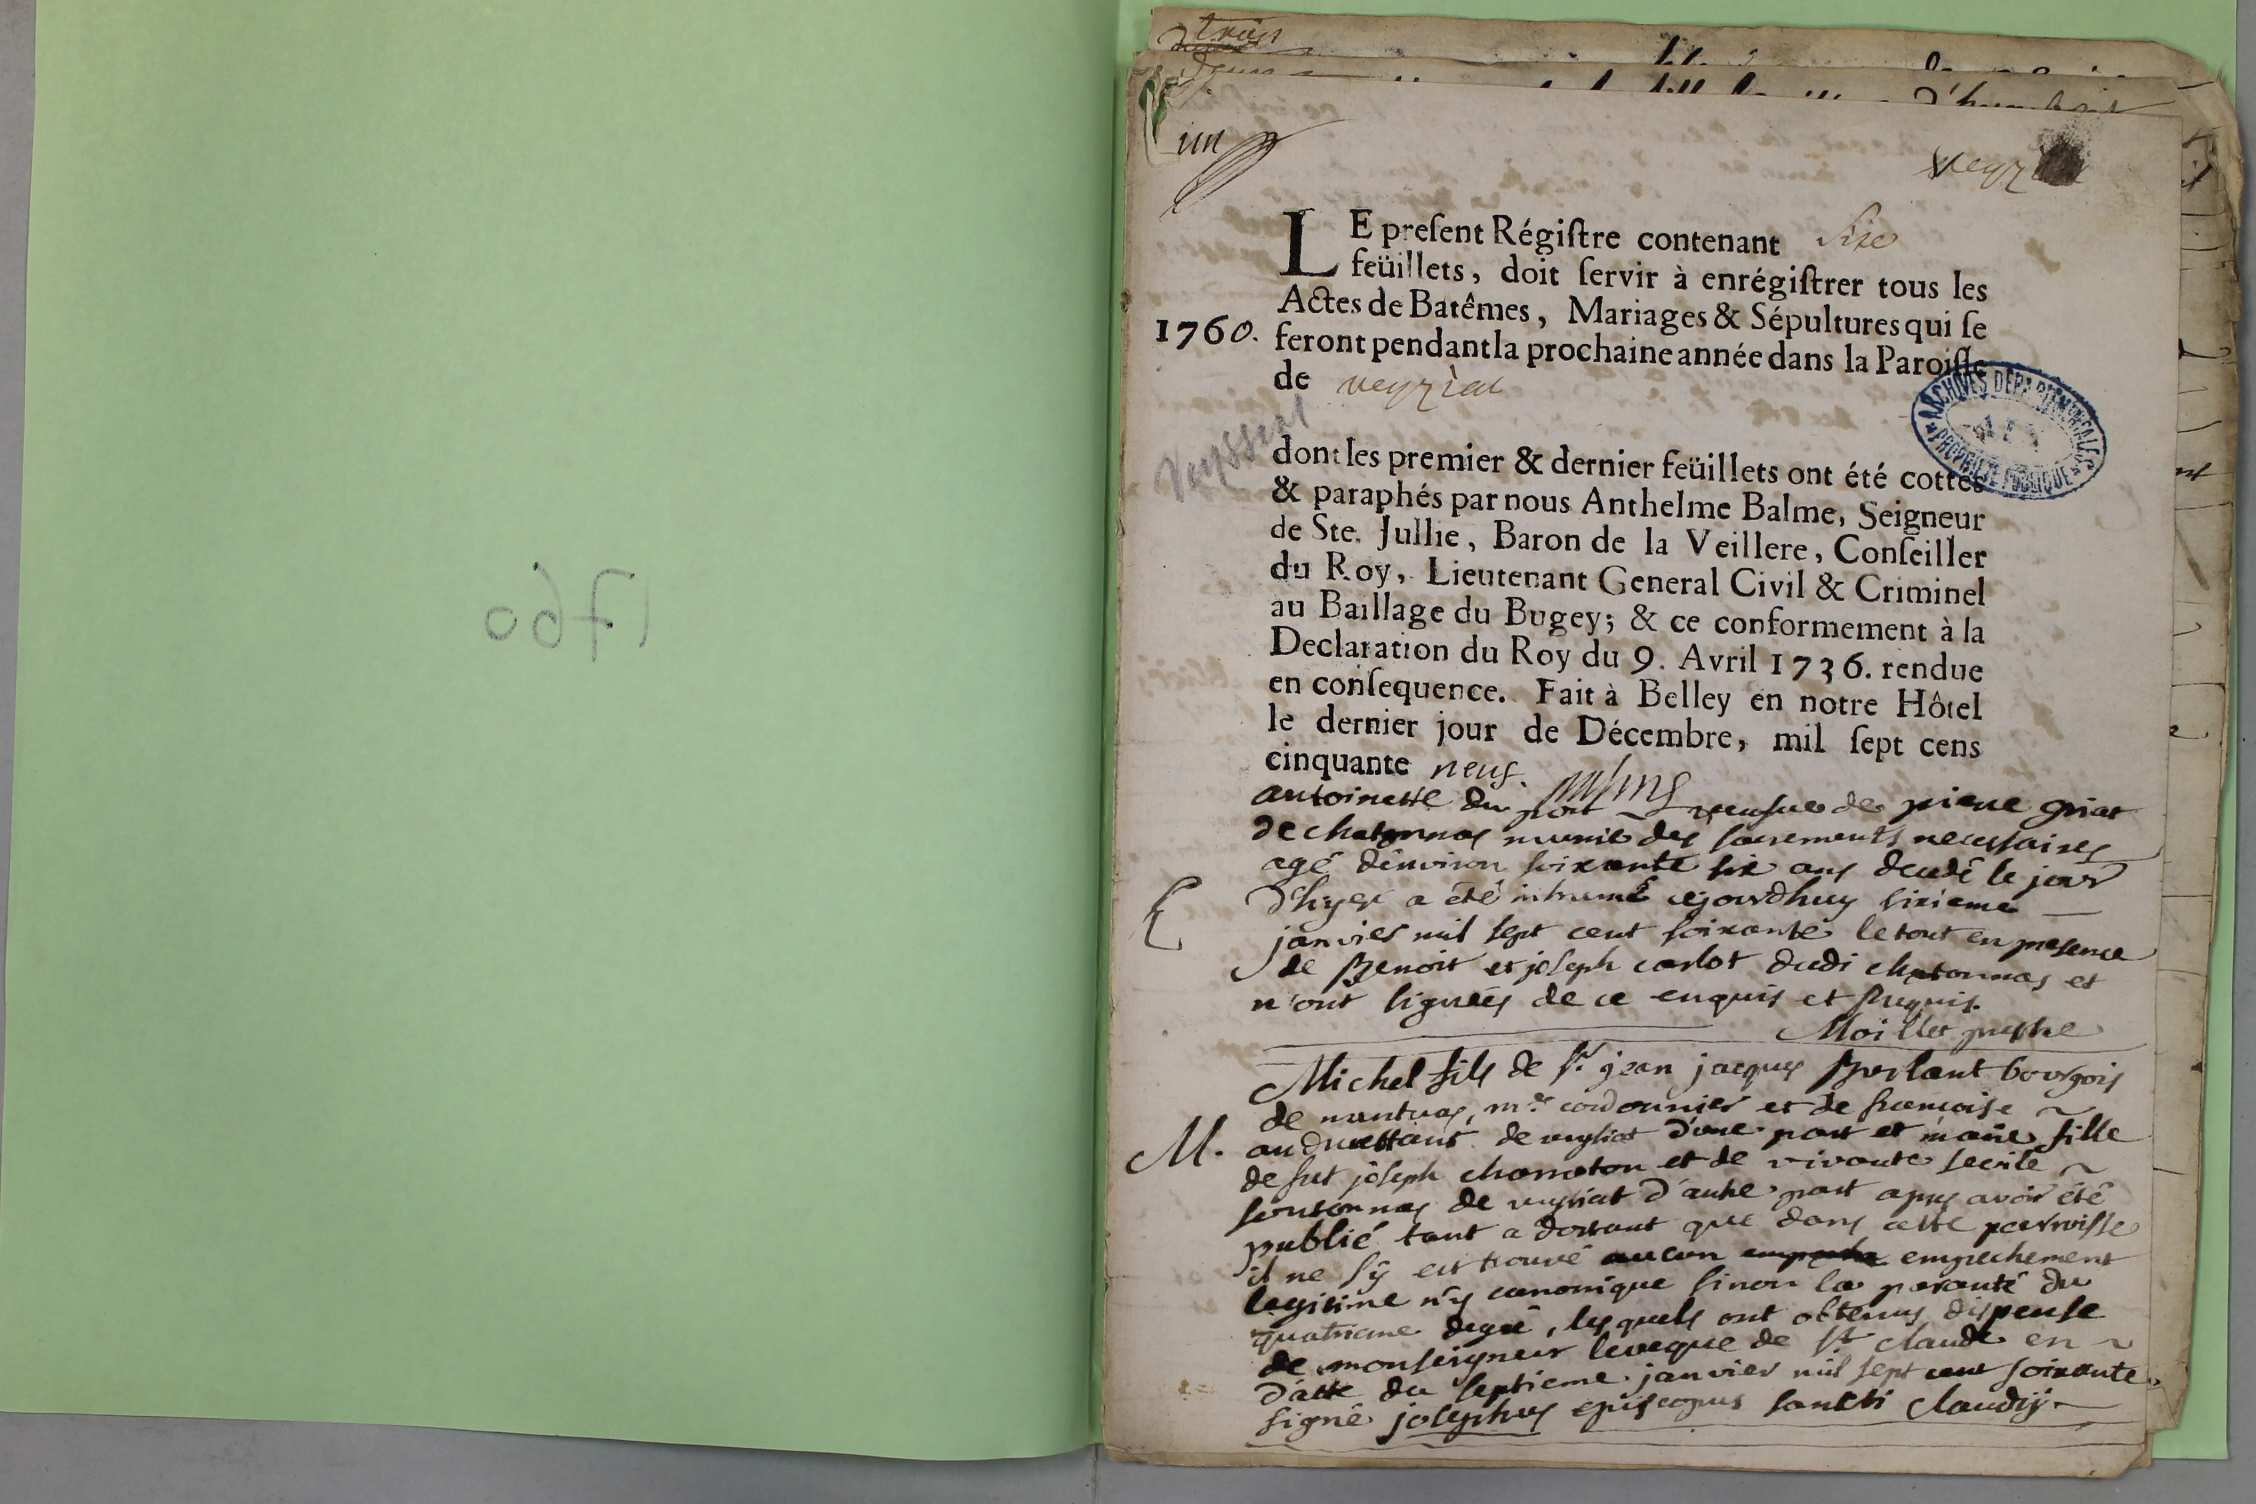 1760
trois
deux
un
veyziat
LE preſent Régiſtre contenant six
feüillets, doit ſervir à enrégiſtrer tous les
Actes de Batêmes, Mariages & Sépultures qui ſe
1760. feront pendant la prochaine année dans la Paroiſſe
de veyziat
ARCHIVES DEPARTEMENTALES
AIN
PROPRIETE PUBLIQUE
Veyssiat
dont les premier & dernier feüillets ont été cottés
& paraphés par nous Anthelme Balme, Seigneur
de Ste. Jullie, Baron de la Veillere, Conſeiller
du Roy, Lieutenant General Civil & Criminel
au Baillage du Bugey; & ce conformement à la
Declaration du Roy du 9. Avril 1736. rendue
en conſequence. Fait à Belley en notre Hôtel
le dernier jour de Décembre, mil ſept cens
cinquante neuf.
antoinette du port veufve de pierre griat
de chatonnas munie des sacrements necessaires
agé d'environ soixante six ans decedé le jour
E d'hyer a été inhumé cejourdhuy sixieme
janvier mil sept cent soixante le tout en presence
de Benoit et joseph carlot dudi chatonnas et
n'ont signées de ce enquis et requis.
Moillet prestre
Michel fils de sr. jean jacques Berlant bourgois
de nantuas, me. cordonnier et de francoise
M. anduettant de veysiat d'une part et marie fille
de fut joseph chamoton et de vivante cecile
sontonnas de veysiat d'autre part apres avoir été
publié tant a dortant que dans cette parroisse
il ne s'y est trouvé aucun empechement
legitime n'y canonique sinon la paranté du
quatrieme degré, lesquels ont obtenus dispense
de monseigneur leveque de st claude en
datte du septieme janvier mil sept cent soixante
signé josephus episcopus sancti claudij